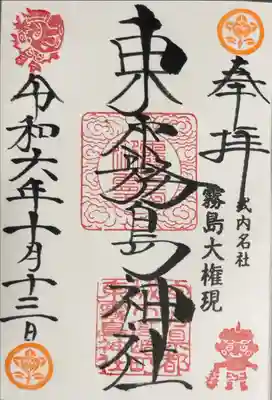 奉拝
式内名社
霧島大権現
東霧島神社
令和六年十月十三日